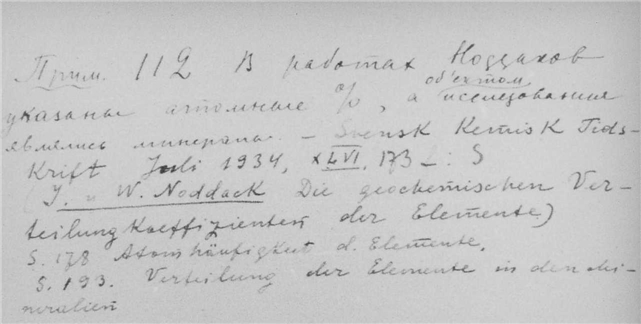 Прим. 112 В работах Ноддаков
указаны атомные %, а объектом исследования
являлись минералы. – Svensk Kemisk Tids-
Krift Juli 1934, XLVI, 173 – : S
(J. u W. Noddack Die geochemischen Ver-
teilungkoeffizienten der Elemente)
S. 178 Atomhäufigkeit d. Elemente.
S. 193. Verteilung der Elemente in den Mi-
neralien